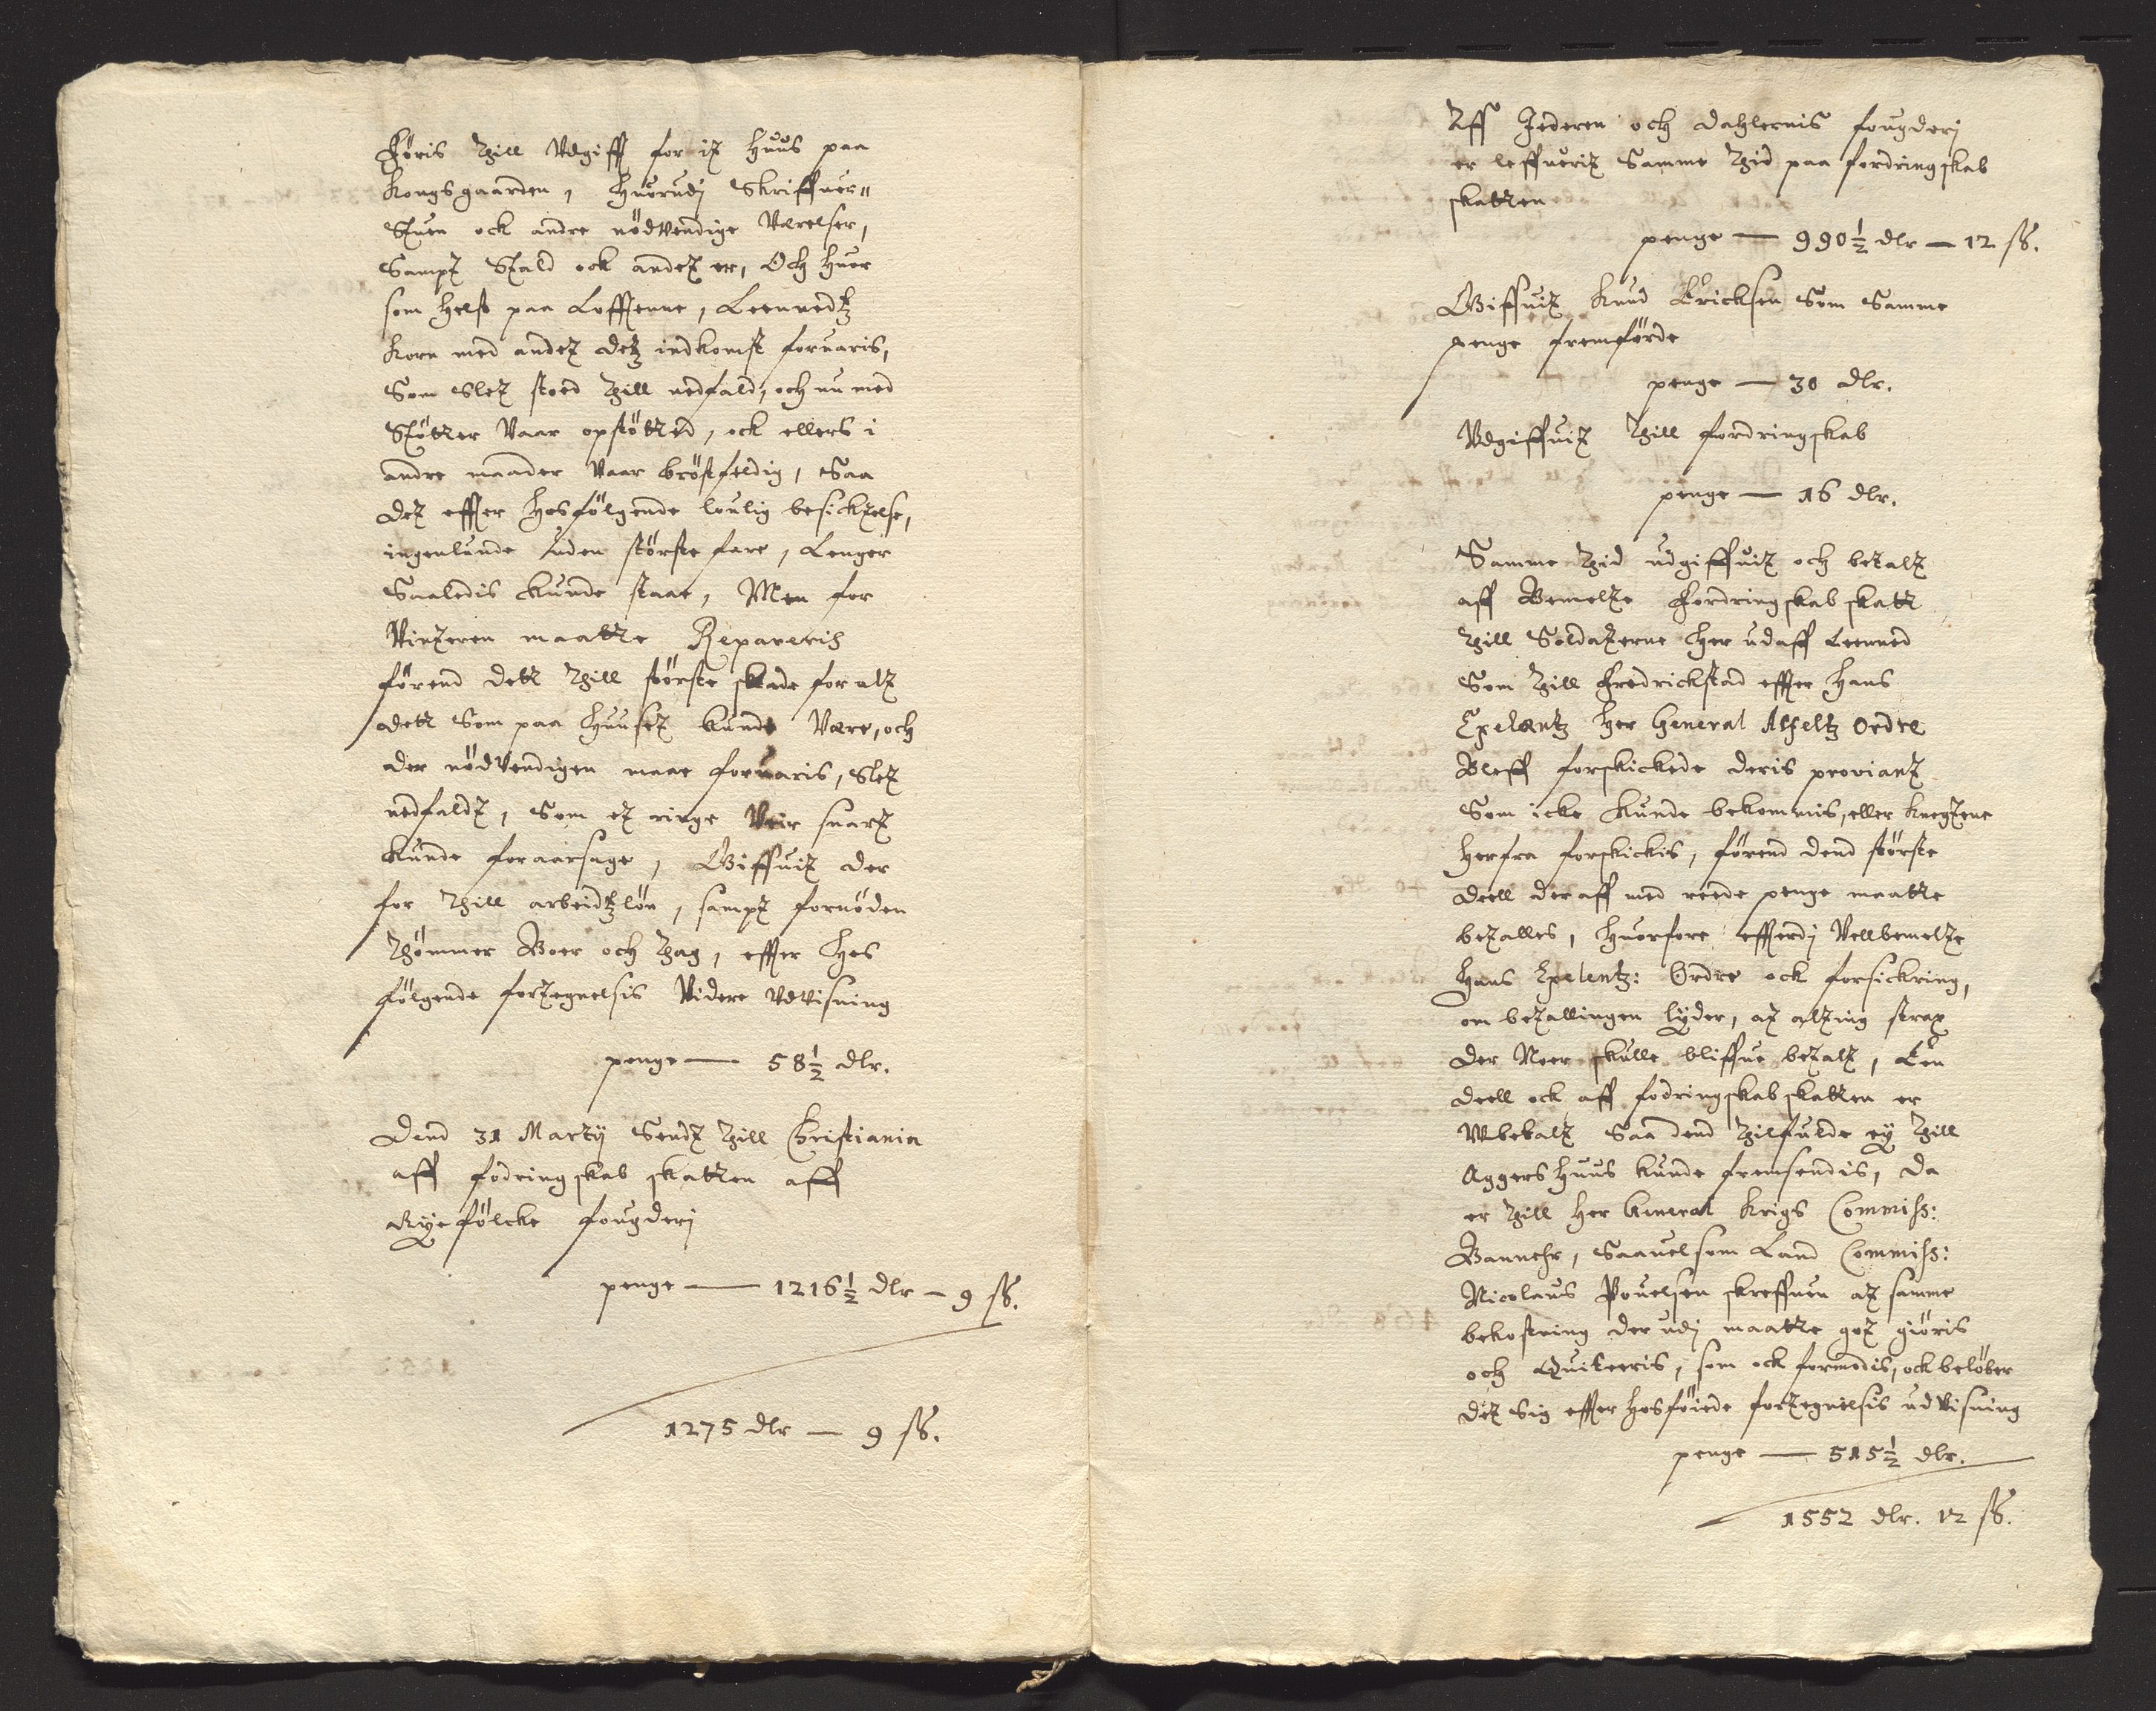 Føris Thill Udgifft for it Huus paa
Kongsgaarden, Huorudj Skriffuer=
Stuen ock andre nödvendige Værelser,
Sampt Stald ock andet er, Och huor
som helst paa Lofftenne, Leennedtz
Korn med andet detz indkomst foruaris,
Som Slet stoed Thill nedfald, och nu med
Støtter Vaar opstötted, ock ellers i
andre maader Vaar bröstfeldig, Saa
det effter Hosfölgende loulig besicktelse,
ingenlunde uden störste fare, Lenger
Saaledis kunde staae, Men for
Vinteren maatte Repareris
förend dett Thill störste skade for alt
dett Som paa Huuset kunde Være, och
der nödvendigen maae foruaris, Slet
nedfaldt, Som et ringe Veir snart
kunde foraarsage, Giffuit der
for Thill arbeidtzlön, sampt fornöden
Thömmer Boer och Thag, effter Hos
fölgende fortegnelsis Videre Udvisning
penge — 58½ dlr.
Dend 31 Martij Sendt Thill Christiania
aff fodringskab skatten aff
Ryefölcke fougderj
penge — 1216½ dlr — 9 ss.
1275 dlr — 9 ss.
Aff Jederen och Dahlernis fougderj
er leffuerit Samme Thid paa fordringskab
skatten
penge — 990½ dlr — 12 ss.
Giffuit Knud Ericksen Som Samme
penge fremförde
penge — 30 dlr.
Udgiffuit Thill fordringskab
penge — 16 dlr.
Samme Thid udgiffuit och betalt
aff Bemelte Fordringskab skatt
Thill Soldaterne Her udaff Leenned
Som Thill Fredrickstad effter Hans
Exelentz Her General Alfeltz Ordre
Bleff forskickede deris proviant
Som icke kunde bekommis, eller knegtene
herfra forskickis, förend dend störste
deell der aff med reede penge maatte
betalles, Huorfore effterdj Vellbemelte
Hans Exelentz: Ordre ock forsickring,
om betallingen lyder, at alting strax
der Neer skulle bliffue betalt, Een
deell ock aff fodringskab skatten er
Ubetalt Saa dend Thilfulde ey Thill
Aggers Huus kunde fremsendis, da
er Thill Her General Krigs Commiss:
Bannehr, Saauelsom Land Commiss:
Nicolaus Pouelsen skreffuen at samme
bekostning der udj maatte got giöris
och Quiteeris, som ock formodis, ock belöber
det Sig effter hosföiede fortegnelsis udVisning
penge — 515½ dlr.
1552 dlr. 12 ss.